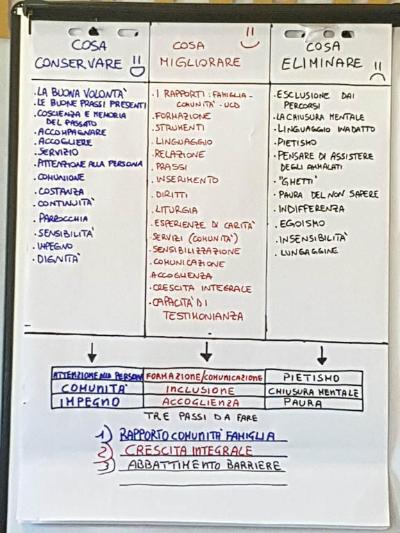 COSA
CONSERVARE
. LA BUONA VOLONTÀ
. LE BUONE PRASSI PRESENTI
. COSCIENZA E MEMORIA
DEL PASSATO
. ACCOMPAGNARE
. ACCOGLIERE
. SERVIZIO
. ATTENZIONE ALLA PERSONA
. COMUNIONE
. COSTANZA
. CONTINUITÀ
. PARROCCHIA
. SENSIBILITÀ
. IMPEGNO
. DIGNITÀ
COSA
MIGLIORARE
. I RAPPORTI: FAMIGLIA-
COMUNITÀ - UCD
. FORMAZIONE
. STRUMENTI
. LINGUAGGIO
. RELAZIONE
. PRASSI
. INSERIMENTO
. DIRITTI
. LITURGIA
. ESPERIENZE DI CARITÀ
. SERVIZI (COMUNITÀ)
. SENSIBILIZZAZIONE
. COMUNICAZIONE
. ACCOGLIENZA
. CRESCITA INTEGRALE
. CAPACITÀ DI
TESTIMONIANZA
COSA
ELIMINARE
. ESCLUSIONE DAI
PERCORSI
. LA CHIUSURA MENTALE
. LINGUAGGIO INADATTO
. PIETISMO
. PENSARE DI ASSISTERE
DEGLI AMMALATI
. "GHETTI"
. PAURA DEL NON SAPERE
. INDIFFERENZA
. EGOISMO
. INSENSIBILITÀ
. LUNGAGGINE
ATTENZIONE ALLA PERSONA FORMAZIONE/COMUNICAZIONE PIETISMO
COMUNITÀ INCLUSIONE CHIUSURA MENTALE
IMPEGNO ACCOGLIENZA PAURA
TRE PASSI DA FARE
1) RAPPORTO COMUNITÀ FAMIGLIA
2) CRESCITA INTEGRALE
3) ABBATTIMENTO BARRIERE